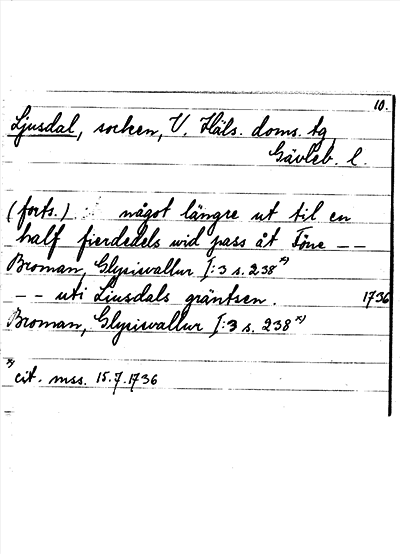 10.
Ljusdal, socken, V. Häls. doms. tg
Gävleb. l.
(forts.) : något längre ut til en
half fierdedels wid pass åt Föne --
Broman, Glysisvallur I:3 s. 238 x)
-- uti Liusdals gräntsen. 1736
Broman, Glysisvallur I:3 s. 238 x)
x) cit. mss. 15.7.1736